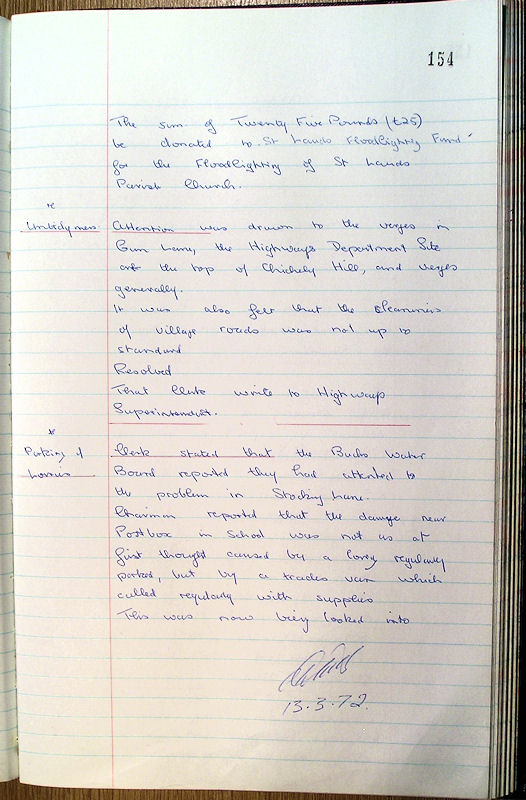 154
The sum of Twenty Five Pounds (£25)
be donated to St Lauds Floodlighting Fund
for the Floodlighting of St Lauds
Parish Church.
re
Untidyness. Attention was drawn to the verges in
Gun Lane, the Highways Department Site
at the top of Chichely Hill, and verges
generally.
It was also felt that the cleanniss
of village roads was not up to
standard
Resolved
That Clerk write to Highways
Superintendent.
re
Parking of Clerk stated that the Bucks Water
Lorries Board reported they had attented to
the problem in Stocking Lane.
Chairman reported that the damage near
Postbox in School was not as at
first thought caused by a lorry regularly
parked, but by a trades van which
called regularly with supplies
This was now being looked into
13.3.72.